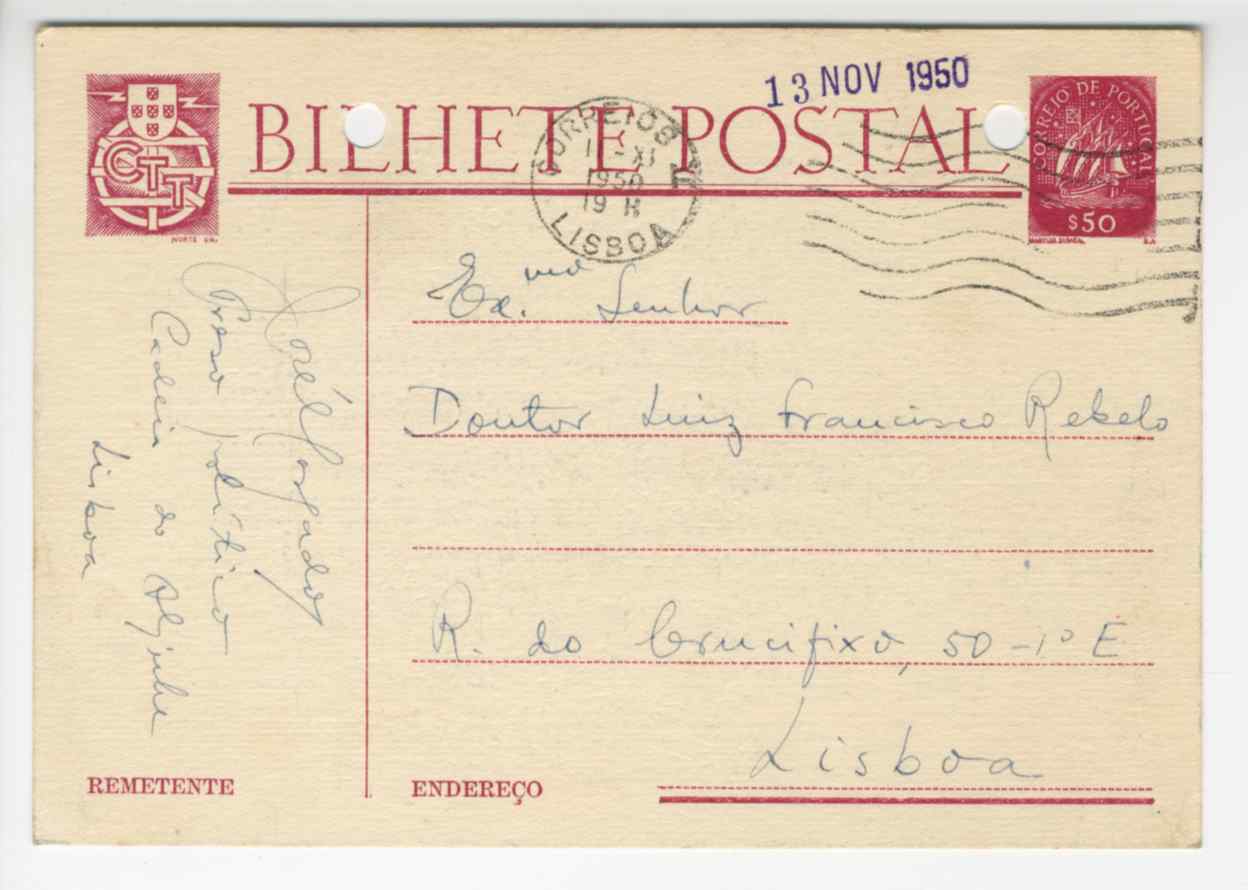 13 NOV 1950
CTT
BILHETE POSTAL
CORREIO DE PORTUGAL
$50
CORREIOS
XI
1950
19 H
LISBOA
Ex.mo Senhor
Doutor Luiz Francisco Rebelo
R. do Crucifixo, 50-1º E
Lisboa
José
Preso político
Cadeia do Aljube
Lisboa
REMETENTE
ENDEREÇO